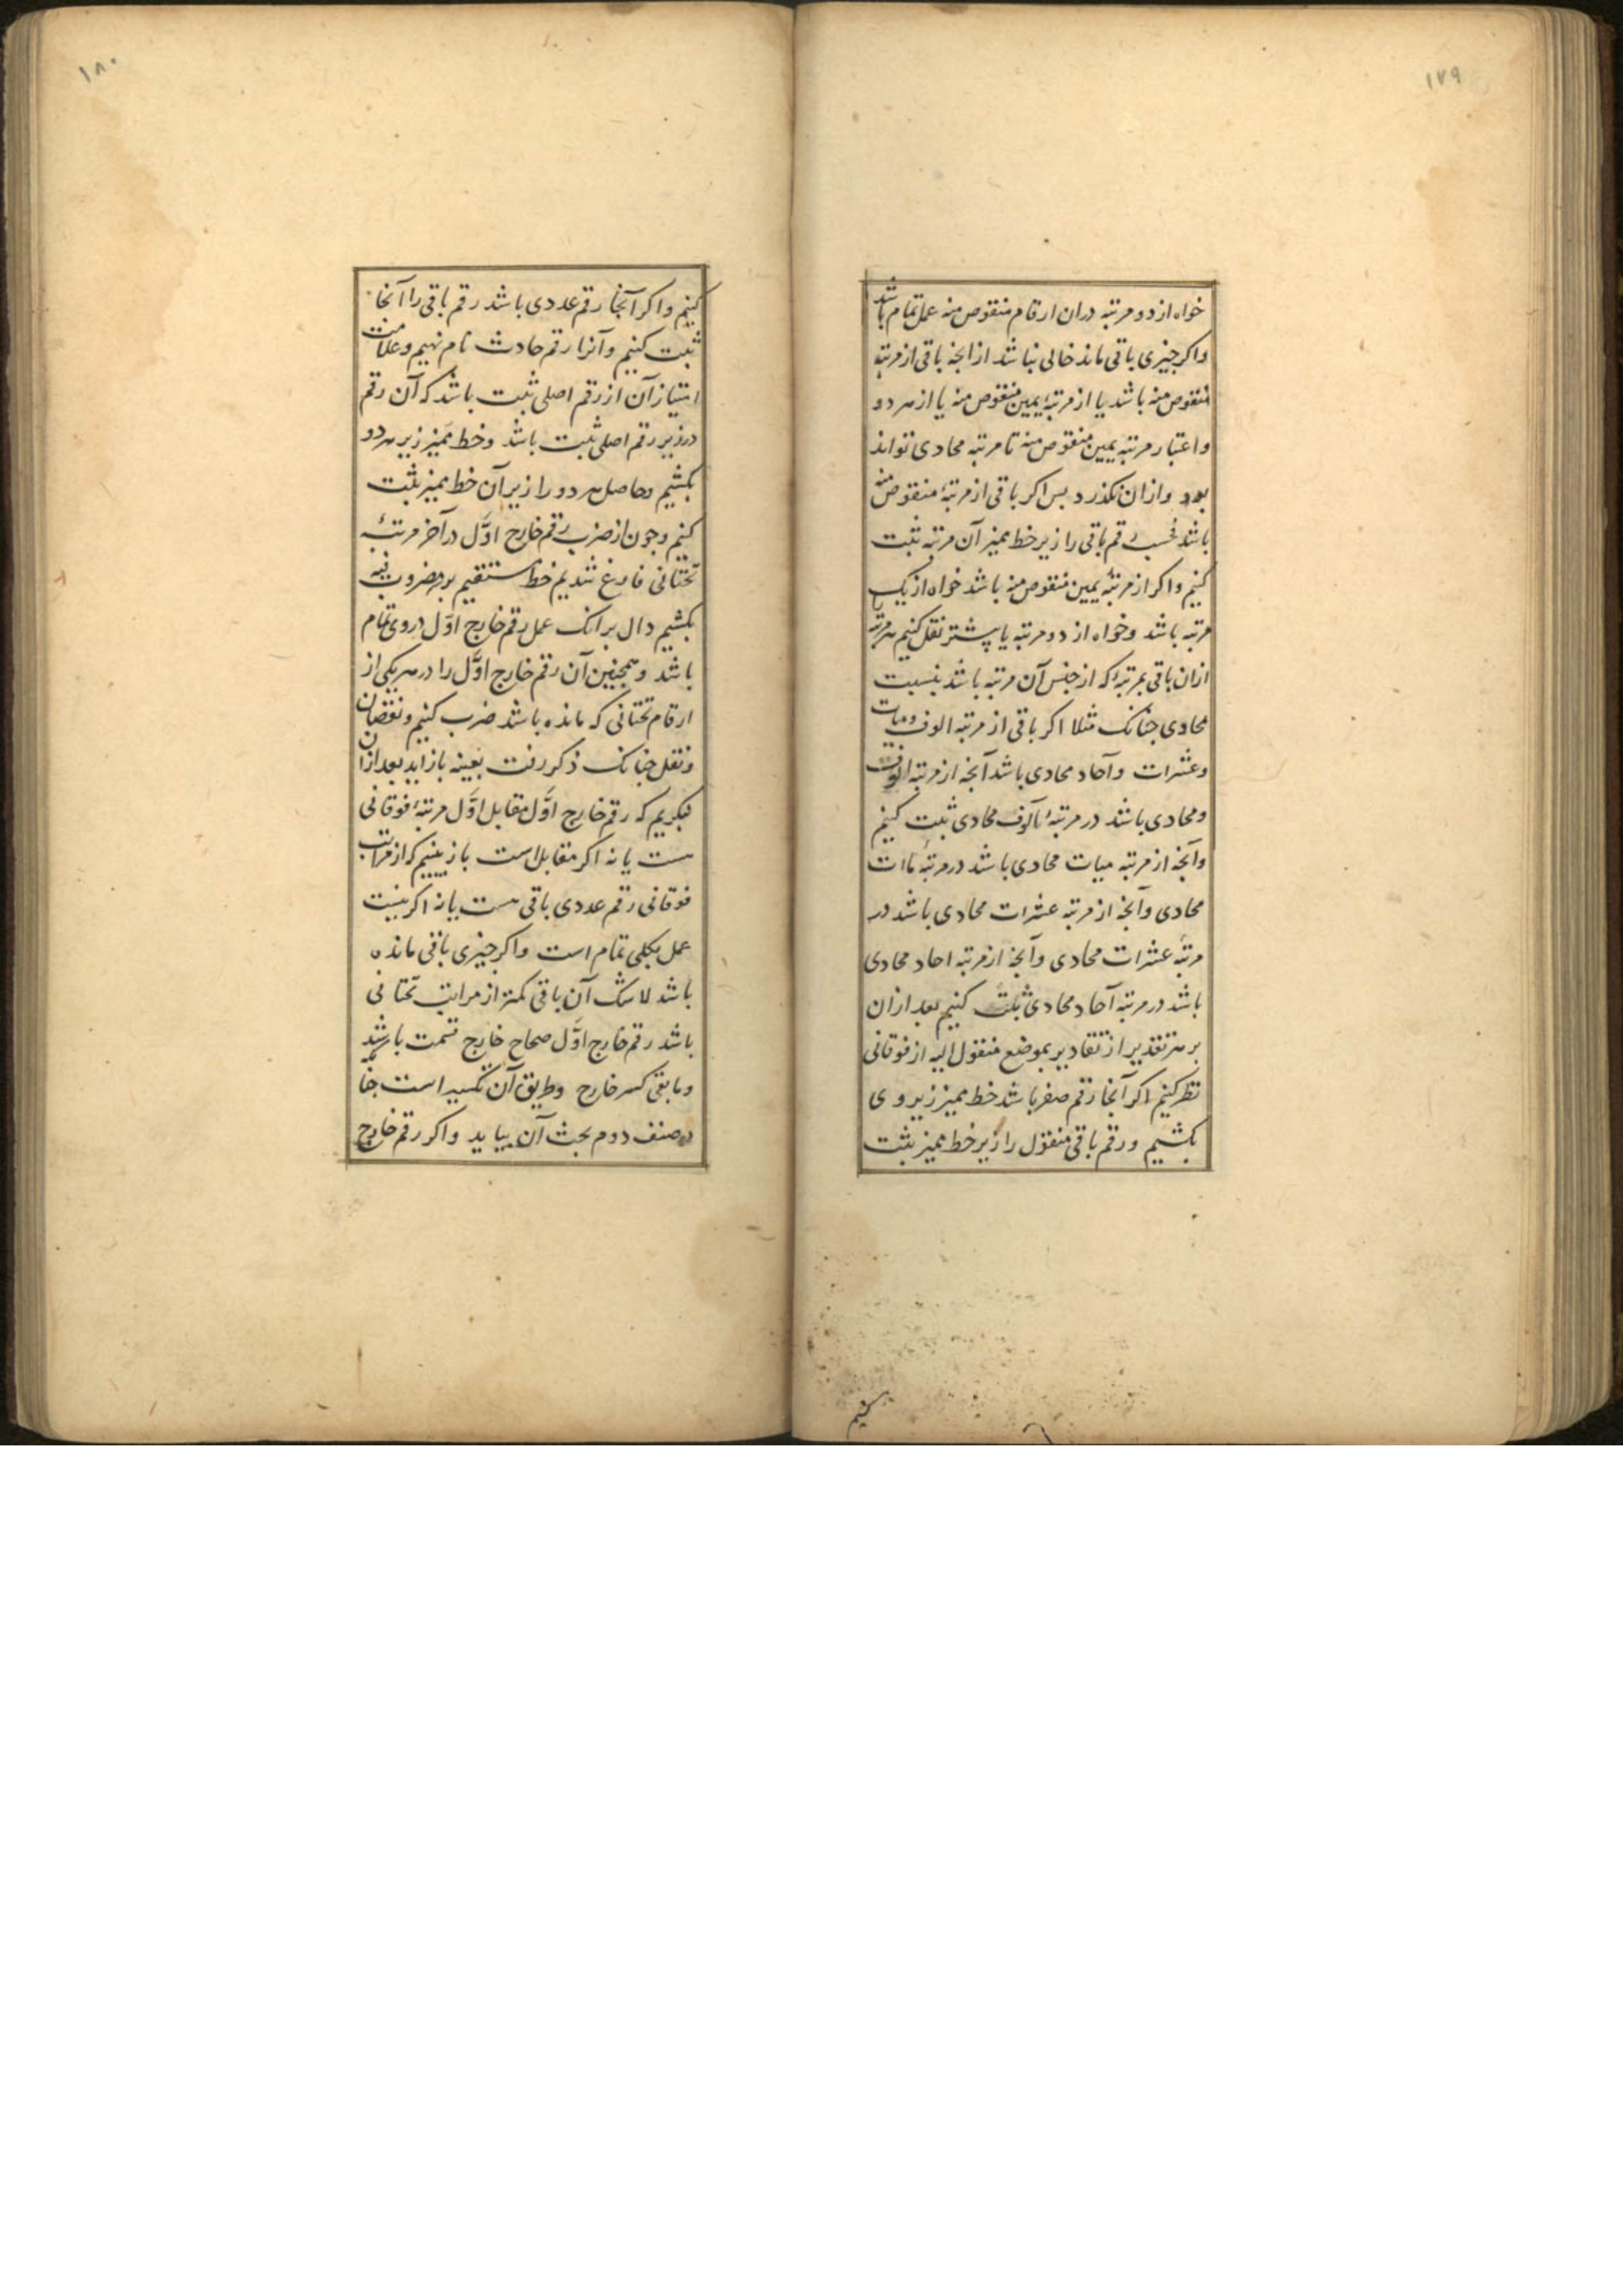 ۱۷۹
خواه از دو مرتبه دران ارقام منقوص منه عمل تمام باشد
واکر چیزی باقی ماند خالی نباشد ازانجه باقی از مرتبه
منقوص منه باشد یا از مرتبهٔ یمین منقوص منه یا از هر دو
واعتبار مرتبه یمین منقوص منه تا مرتبه محادی تواند
بود وازان نکذرد بس اکر باقی از مرتبهٔ منقوص منه
باشد فحسب رقم باقی را زیر خط ممیز آن مرتبه ثبت
کنیم واکر از مرتبهٔ یمین منقوص منه باشد خواه از یک
مرتبه باشد وخواه از دو مرتبه یا پیشتر نقل کنیم هر مرتبه را
ازان باقی بمرتبهٔ که از جنس آن مرتبه باشد بنسبت
محادی جنانک مثلا اکر باقی از مرتبه الوف ومیات
وعشرات وآحاد محادی باشد آنجه از مرتبه الوف
ومحادی باشد در مرتبهٔ آلوف محادی ثبت کنیم
وآنجه از مرتبه میات محادی باشد در مرتبهٔ ماات
محادی وآنجه از مرتبه عشرات محادی باشد در
مرتبهٔ عشرات محادی وآنجه از مرتبه احاد محادی
باشد در مرتبه آحاد محادی ثبت کنیم بعد ازان
بر هر تقدیر از تقادیر بموضع منقول الیه از فوقانی
نظر کنیم اکر آنجا رقم صفر باشد خط ممیز زیر وی
بکشیم ورقم باقی منقول را زیر خط ممیز ثبت
کنیم
۱۸۰
کنیم واکر آنجا رقم عددی باشد رقم باقی را آنجا
ثبت کنیم وآنرا رقم حادث نام نهیم وعلامت
امتیاز آن از رقم اصلی ثبت باشد که آن رقم
در زیر رقم اصلی ثبت باشد وخط ممیز زیر هر دو
بکشیم وحاصل هر دو را زیر آن خط ممیز ثبت
کنیم وجون از ضرب رقم خارج اوّل در آخر مرتبهٔ
تحتانی فارغ شدیم خط مستقیم بر مضروب فیه
بکشیم دال برانک عمل رقم خارج اوّل در وی تمام
باشد وهمجنین آن رقم خارج اوّل را در هر یکی از
ارقام تحتانی که مانده باشد ضرب کنیم ونقصان
ونقل جنانک ذکر رفت بعینه باز آید بعد ازان
بنکریم که رقم خارج اوّل مقابل اوّل مرتبهٔ فوقانی
هست یا نه اکر مقابل است باز ببینیم که از مراتب
فوقانی رقم عددی باقی هست یا نه اکر نیست
عمل بکلی تمام است واکر چیزی باقی مانده
باشد لاشک آن باقی کمتر از مراتب تحتانی
باشد رقم خارج اوّل صحاح خارج قسمت باشد
وما بقی کسر خارج وطریق آن تکسیر است جنانکه
در صنف دوم بحث آن بیاید واکر رقم خارج